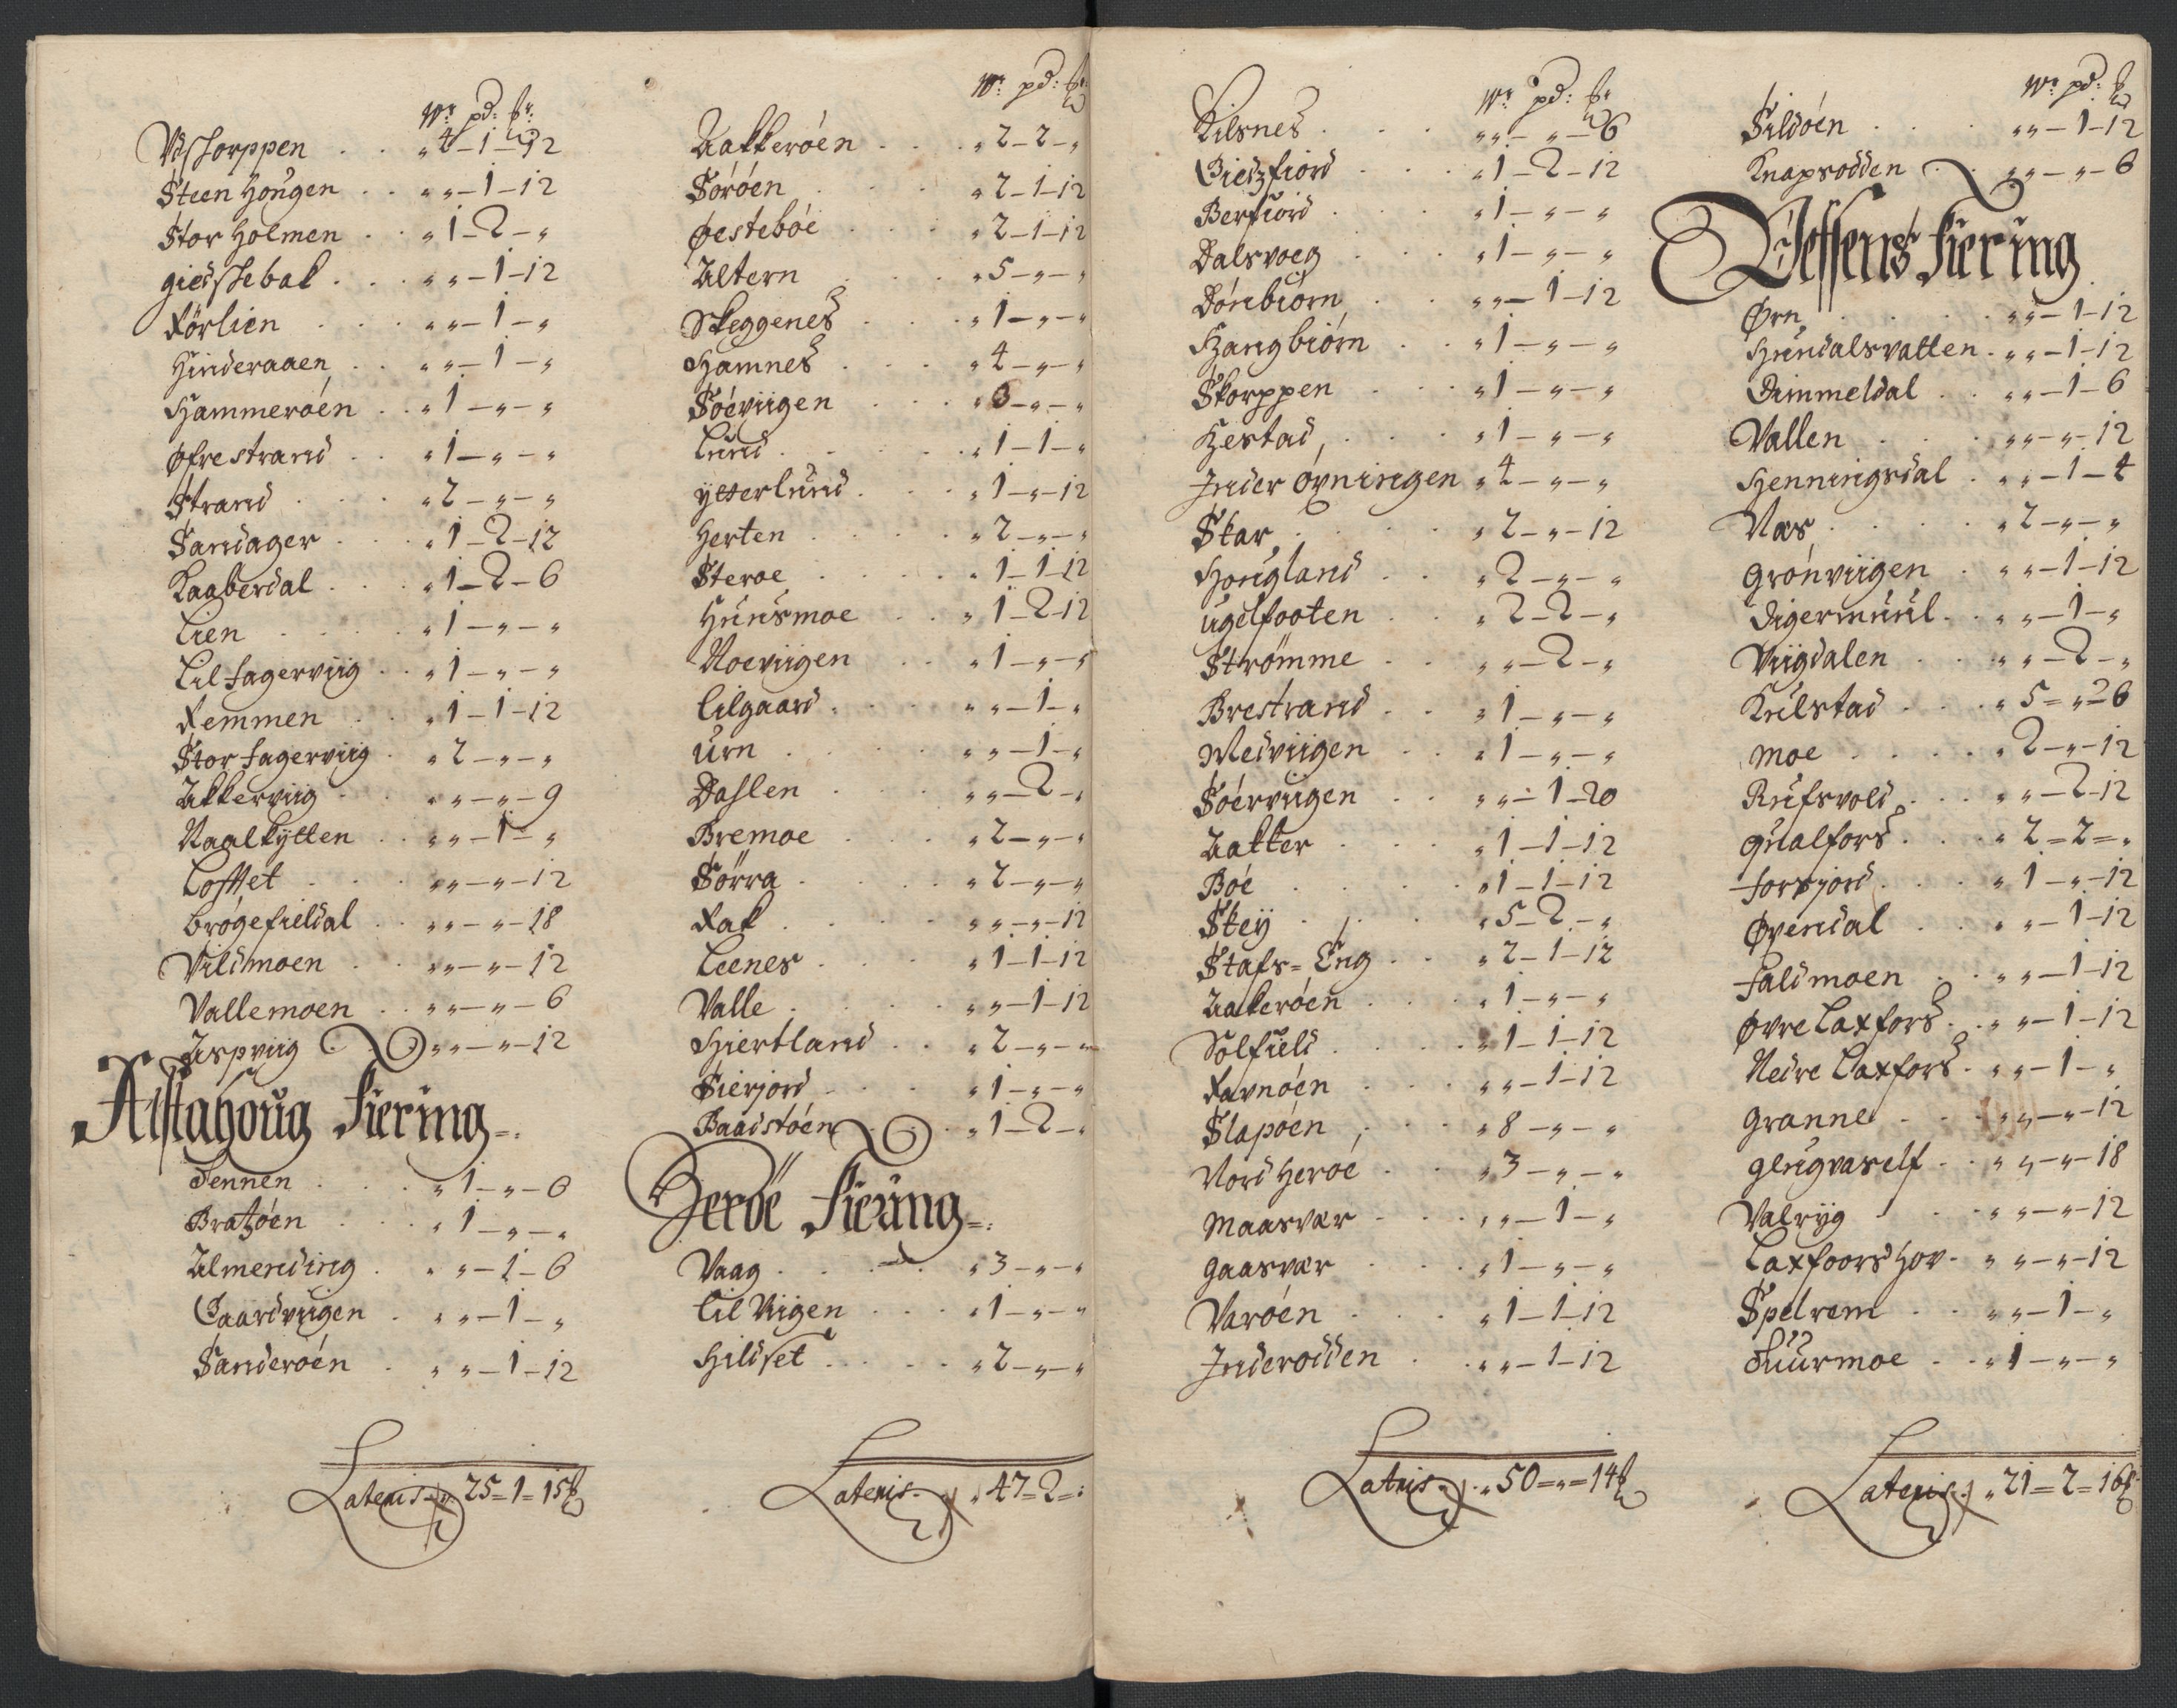 Wr: pd: ℔r:
Vdſkorppen . . „4–1–12
Steen Hougen . . „„–1–12
Stor Holmen . . „1–2–„
giedſkebak . . . „„–1–12
Rörlien . . . „„–1–„
Hinderaaen . . „„–1–„
Hammeröen . . „1–„–„
Øfrestrand . . „1–„–„
Strand . . . „2–„–„
Sandager . . . „1–2–12
Kaaberdal . . . „1–2–6
Lien . . . . „1–„–„
Lil fagerviig . . „1–„–„
Remmen . . „1–1–12
Stor fagerviig . „2–„–„
Akkerviig . . „„–„–9
Naalkytten . . „„–1–„
Lofftet . . . „„–„–12
brögefieldal . . „„–„–18
Vildmoen . . „„–„–12
Vallemoen . . „„–„–6
Aspviig „„–„–12
Alstahoug Fiering
Tennen . . . „1–„–6
Bratzöen . . . „1–„–„
Almending . . „„–1–6
Gaardviigen . „„–1–„
Sanderöen . „„–1–12
Lateris . „25=1=15℔
Wr: pd: ℔r:
Aakkeröen . . . „2–2–„
Söröen . . . „2–1–12
Øesteböe . . . „2–1–12
Altern . . . „5–„–„
Skeggenes . . . „1–„–„
Hamnes . . . „4–„–„
Söeviigen . . . „3–„–„
Lund . . . . „1–1–„
ytterlund . . . „1–„–12
Herten . . . „2–„–„
Steroe . . . . „1–1–12
Hunsmoe . . „1–2–12
Noeviigen . . „1–„–„
Lilgaard . . . „„–1–„
Urn . . . . „„–1–„
Dahlen . . . „„–2–„
Bremoe . . . „2–„–„
Sörra . . . . „2–„–„
Rak . . . . „„–„–12
Leenes . . . „1–1–12
Valle . . . . „„–1–12
Hiertland . . „2–„–„
Sierjord . . . „1–„–„
Baadstöen . „1–2–„
Heröe Fiering
Vaag . . . . „3–„–„
Lil Viigen . . . „1–„–„
Hildset . . . . „2–„–„
Lateris . „47=2=:
Wr: pd: ℔r
Kilsnes . . . „„–„–6
Giedzfiord . . . „1–2–12
Berfiord . . . „1–„–„
Dalsvoeg . . „1–„–„
Dönbiörn . . „„–1–12
Hangbiörn . . „1–„–„
Skorppen . . . „1–„–„
Hestad . . . . „1–„–„
Inder övningen „4–„–„
Skar . . . . „2–„–12
Hougland . . „2–„–„
ugelfooten . . „2–2–„
Strömme . . „„–2–„
Brestrand . . „1–„–„
Medviigen . . „1–„–„
Söerviigen . . „„–1–20
Aakter . . . „1–1–12
Böe . . . . „1–1–12
Skey . . . . „5–2–„
Stafs=Eng . . „2–1–12
Aakeröen . . „1–„–„
Solfield . . . „1–1–12
Ravnöen . . . „„–1–12
Slapöen . . . „8–„–„
Nord Heröe . . „3–„–„
Maasvær . . . „„–1–„
gaasvær . . . „1–„–„
Varöen . . . „1–1–12
Inderodden . . „„–1–12
Lateris . „50=„=14℔
Wr: pd: ℔
Sildöen . . . „„–1–12
Knapsodden „„–„–6
Vefsens Fiering
Ørn . . . . „„–1–12
Hundalsvatten . „„–1–12
Dimmeldal . . „„–1–6
Vallen . . . „„–„–12
Henningsdal . „„–1–4
Næs . . . . „2–„–„
Grönviigen . „„–1–12
Digermuul . . „„–1–„
Viigdalen . . „„–2–„
Kulstad . . . „5=„=26
Moe . . . . „2–„–12
Rufsvold . . . „„–2–12
gualfors . . . „2=2=„
forsjord . . . „1–„–12
Øvendal . . „„–1–12
faldmoen . . „„–1–12
Øvre Laxfors . „„–1–12
Nedre Laxfors . „„–1–„
granne . . . „„–„–12
glugvaself . . „„–„–18
Valryg . . „„–„–12
Laxfoors Hov . „„–„–12
Spelrem . . „„–1–„
Fuurmoe . . „1–„–„
Lateris . „21=2=16℔